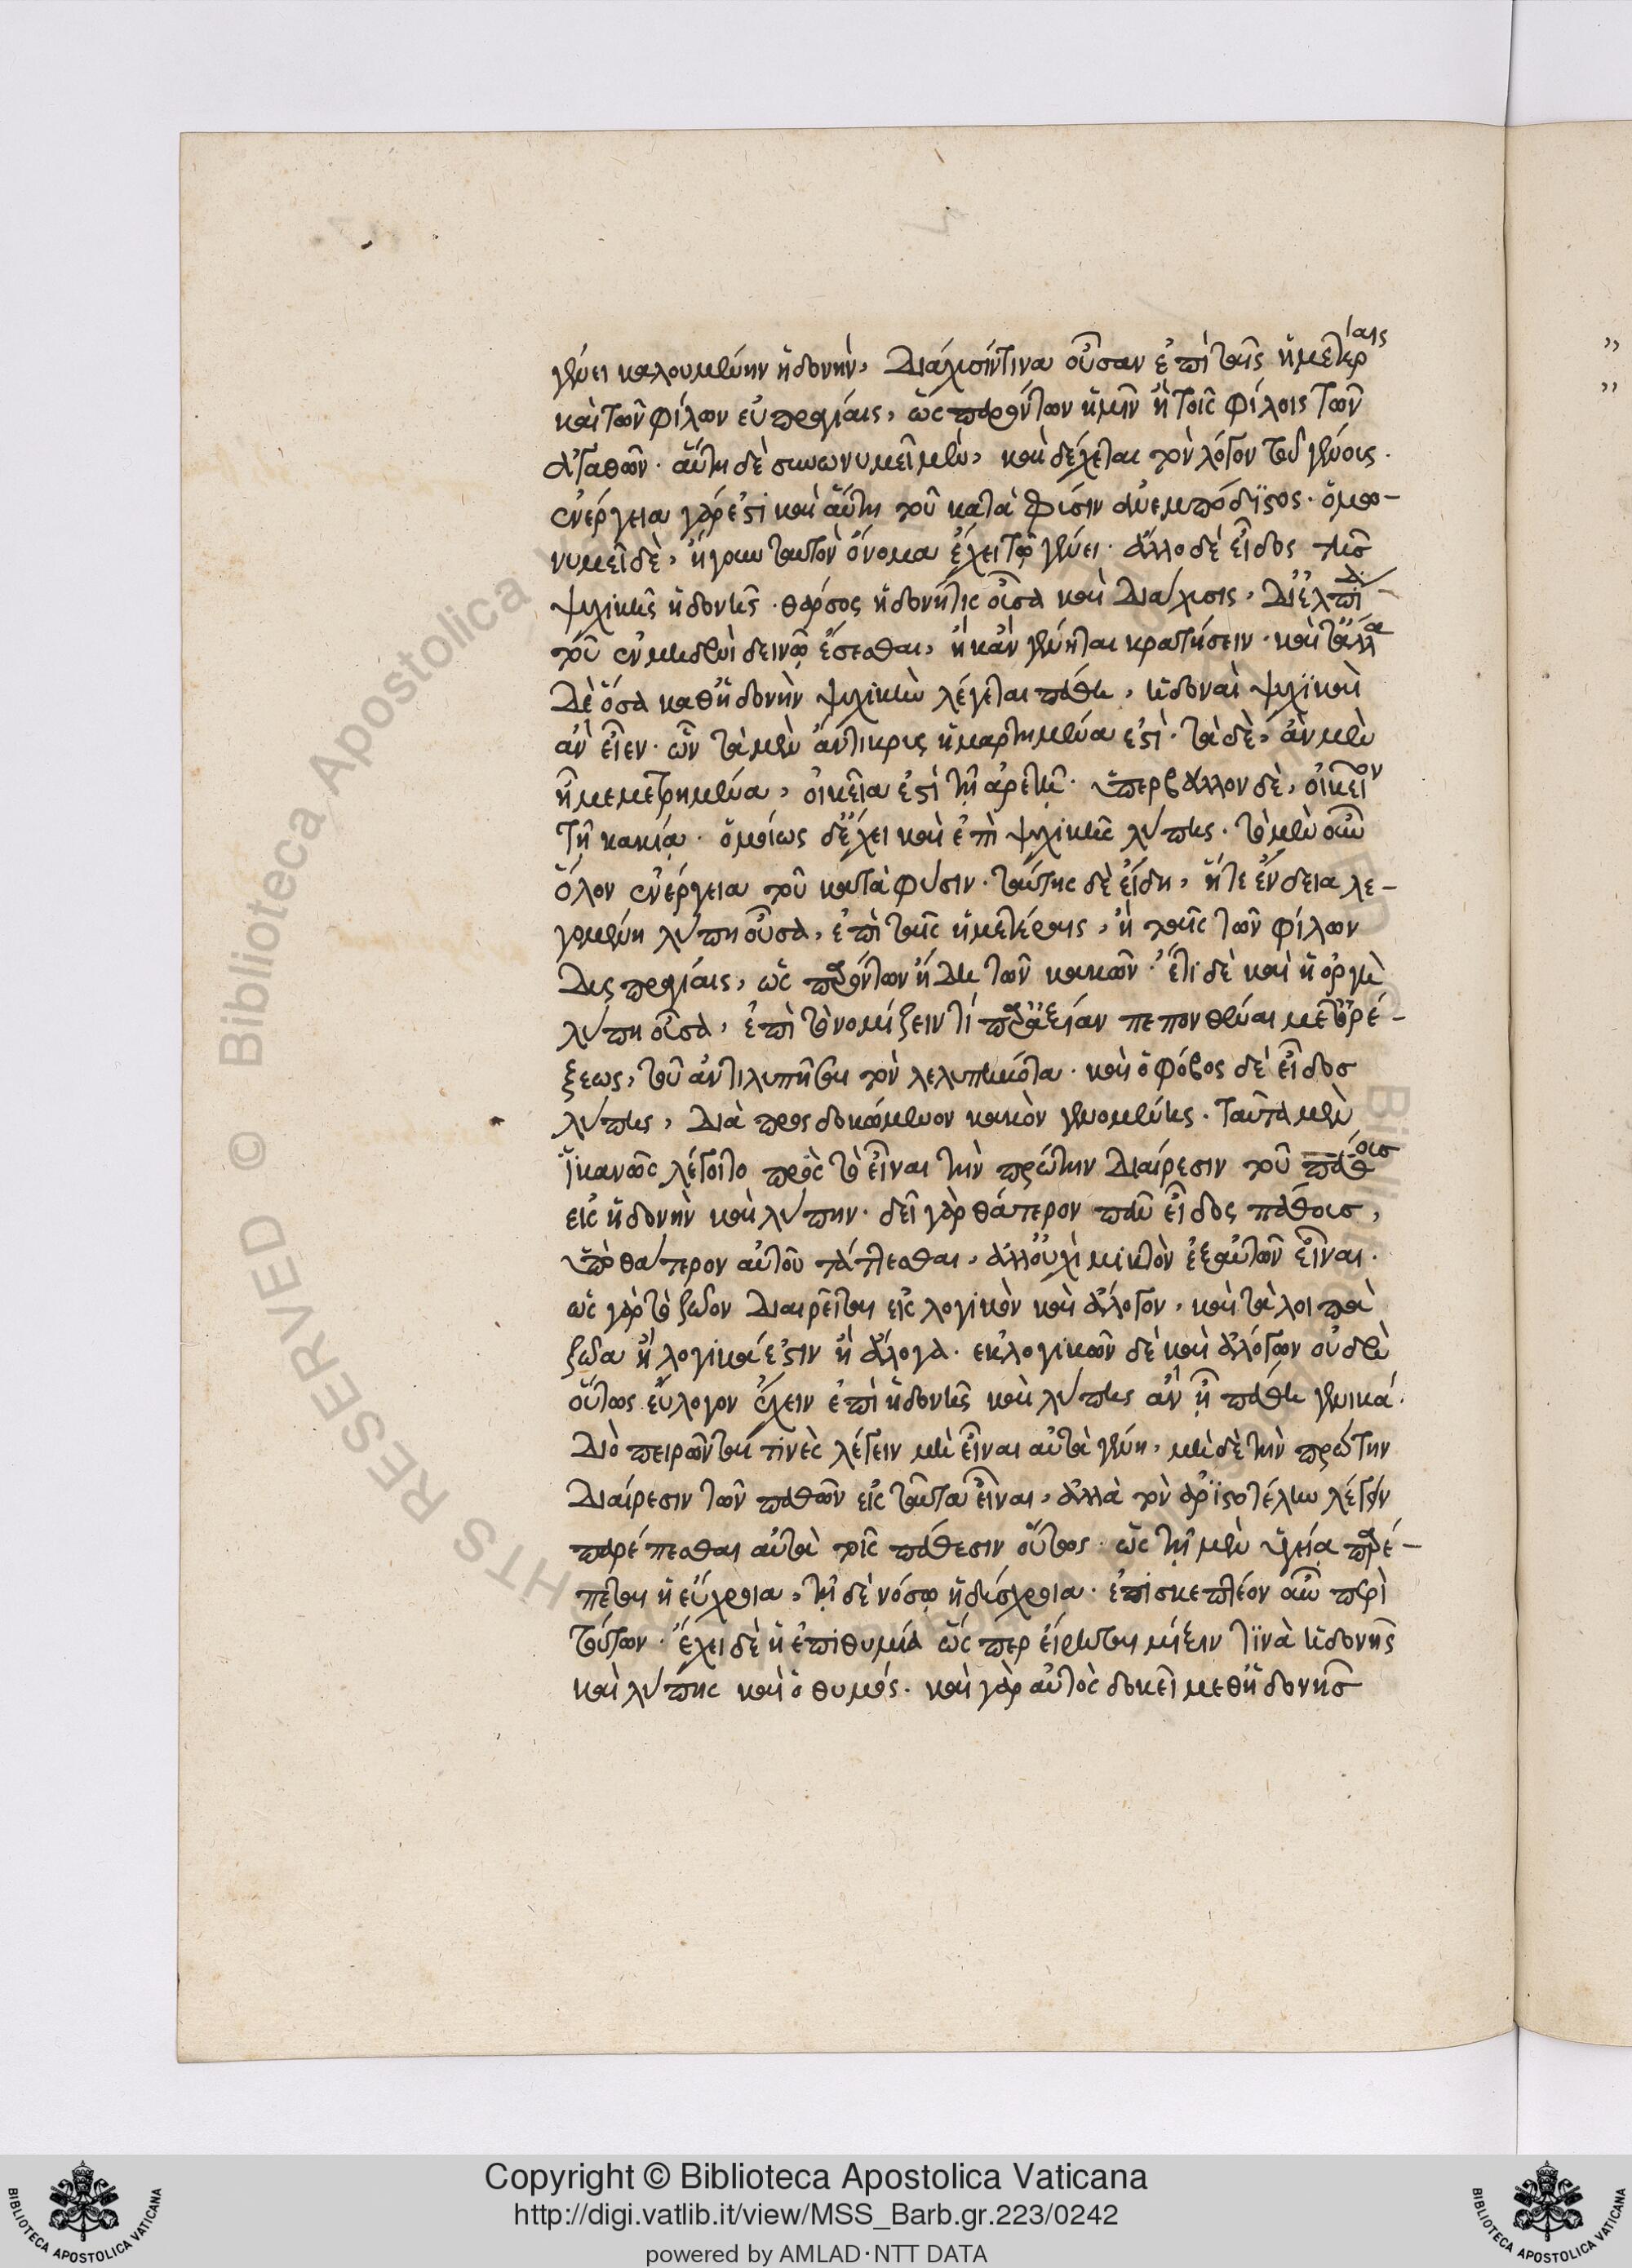 γένει καλουμένην ἡδονὴν, διάχυσίν τινα οὖσαν ἐπὶ ταῖς ἡμετέραις
καὶ τῶν φίλων εὐπραγίαις, ὡς παρόντων ἡμῖν ἢ τοῖς φίλοις τῶν
ἀγαθῶν. αὕτη δὲ συνωνυμεῖ μὲν, καὶ δέχεται τὸν λόγον τοῦ γένους.
ἐνέργεια γάρ ἐστι καὶ αὕτη τοῦ κατὰ φύσιν ἀνεμπόδιστος. ὁμω-
νυμεῖ δὲ, ἤγουν ταυτὸν ὄνομα ἔχει τῷ γένει. ἄλλο δὲ εἶδος τῆς
ψυχικῆς ἡδονῆς. θάρσος ἡδονή τις οὖσα καὶ διάχυσις, δι' ἐλπίδα
τοῦ ἐν μηδενὶ δεινῷ ἔσεσθαι, ἢ κἂν γένηται κρατήσειν. καὶ τἄλλα
δὲ ὅσα καθ' ἡδονὴν ψυχικὴν λέγεται πάθη, ἡδοναὶ ψυχικαὶ
ἂν εἶεν. ὧν τὰ μὲν ἄντικρυς ἡμαρτημένα ἐστὶ. τὰ δὲ, ἂν μὲν
ᾖ μεμετρημένα, οἰκεῖα ἐστὶ τῇ ἀρετῇ. ὑπερβάλλον δὲ, οἰκεῖον
τῇ κακίᾳ. ὁμοίως δ' ἔχει καὶ ἐπὶ ψυχικῆς λύπης. τὸ μὲν οὖν
ὅλον ἐνέργεια τοῦ κατὰ φύσιν. ταύτης δὲ εἴδη, ἥ τε ἔνδεια λε-
γομένη λύπη οὖσα, ἐπὶ ταῖς ἡμετέραις, ἢ ταῖς τῶν φίλων
δυσπραγίαις, ὡς παρόντων ἤδη τῶν κακῶν. ἔτι δὲ καὶ ἡ ὀργὴ
λύπη οὖσα, ἐπὶ τὸ νομίζειν τί παρ' ἀξίαν πεπονθέναι μετ' ὀρέ-
ξεως, τοῦ ἀντιλυπῆσαι τὸν λελυπηκότα. καὶ ὁ φόβος δὲ εἶδος
λύπης, διὰ προσδοκώμενον κακὸν γενομένης. ταῦτα μὲν
ἱκανῶς λέγοιτο πρὸς τὸ εἶναι τὴν πρώτην διαίρεσιν τοῦ πάθους
εἰς ἡδονὴν καὶ λύπην. δεῖ γὰρ θάτερον πᾶν εἶδος πάθους,
ὑπὸ θάτερον αὐτοῦ τάττεσθαι, ἀλλ' οὐχὶ μικτὸν ἐξ αὐτῶν εἶναι.
ὡς γὰρ τὸ ζῶον διαιρεῖται εἰς λογικὸν καὶ ἄλογον, καὶ τὰ λοιπὰ
ζῶα ἢ λογικά ἐστιν ἢ ἄλογα. ἐκ λογικῶν δὲ καὶ ἀλόγων οὐδὲν
οὕτως εὔλογον ἔχειν ἐπὶ ἡδονῆς καὶ λύπης ἂν ᾖ πάθη γενικά.
διὸ πειρῶνταί τινὲς λέγειν μὴ εἶναι αὐτὰ γένη, μὴ δὲ τὴν πρώτην
διαίρεσιν τῶν παθῶν εἰς ταῦτα εἶναι, ἀλλὰ τὸν ἀριστοτέλην λέγειν
παρέπεσθαι αὐτὰ τοῖς πάθεσιν οὕτως. ὡς τῇ μὲν ὑγείᾳ παρέ-
πεται ἡ εὔχροια, τῇ δὲ νόσῳ ἡ δύσχροια. ἐπισκεπτέον οὖν περὶ
τούτων. ἔχει δὲ ἡ ἐπιθυμία ὥσπερ εἴρηται μίξιν τινὰ ἡδονῆς
καὶ λύπης καὶ ὁ θυμός. καὶ γὰρ αὐτὸς δοκεῖ μεθ' ἡδονῆς
Copyright © Biblioteca Apostolica Vaticana
http://digi.vatlib.it/view/MSS_Barb.gr.223/0242
powered by AMLAD·NTT DATA